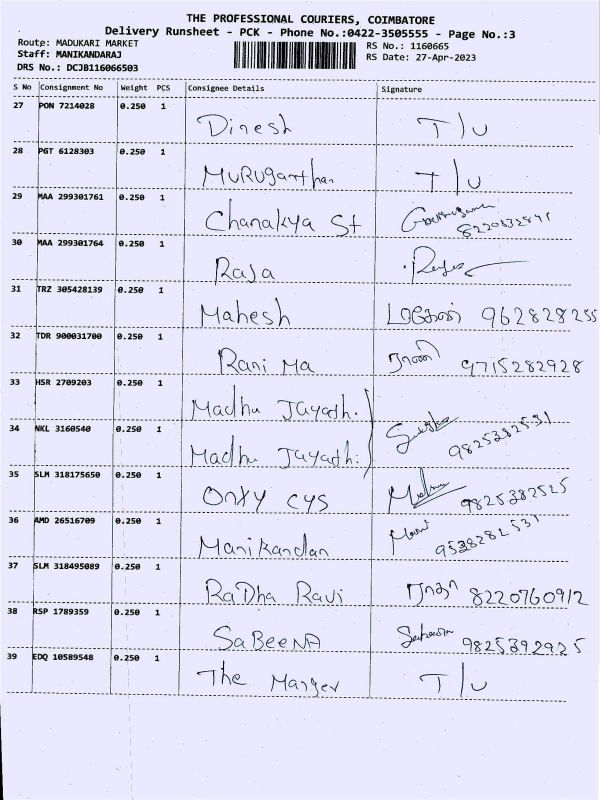 THE PROFESSIONAL COURIERS, COIMBATORE
Delivery Runsheet - PCK - Phone No.:0422-3505555 - Page No.:3
Route: MADUKARI MARKET RS No.: 1160665
Staff: MANIKANDARAJ RS Date: 27-Apr-2023
DRS No.: DCJB116066503
S No Consignment No Weight PCS Consignee Details Signature
27 PON 7214028 0.250 1 Dinesh T/U
28 PGT 6128303 0.250 1 MURUganthan T/U
29 MAA 299301761 0.250 1 Chanakya St
30 MAA 299301764 0.250 1 Raja
31 TRZ 305428139 0.250 1 Mahesh 962828255
32 TDR 900031700 0.250 1 Rani Ma ராணி 9715282928
33 HSR 2709203 0.250 1 Madhu Jayadh.
34 NKL 3160540 0.250 1 Madhu Jayadh. 9825382531
35 SLM 318175650 0.250 1 Onxy cys 9825382525
36 AMD 26516709 0.250 1 Manikandan Mani 9538282531
37 SLM 318495089 0.250 1 RaDha Ravi ராதா 8220760912
38 RSP 1789359 0.250 1 SaBeeNA 9825392925
39 EDQ 10589548 0.250 1 The Manger T/U